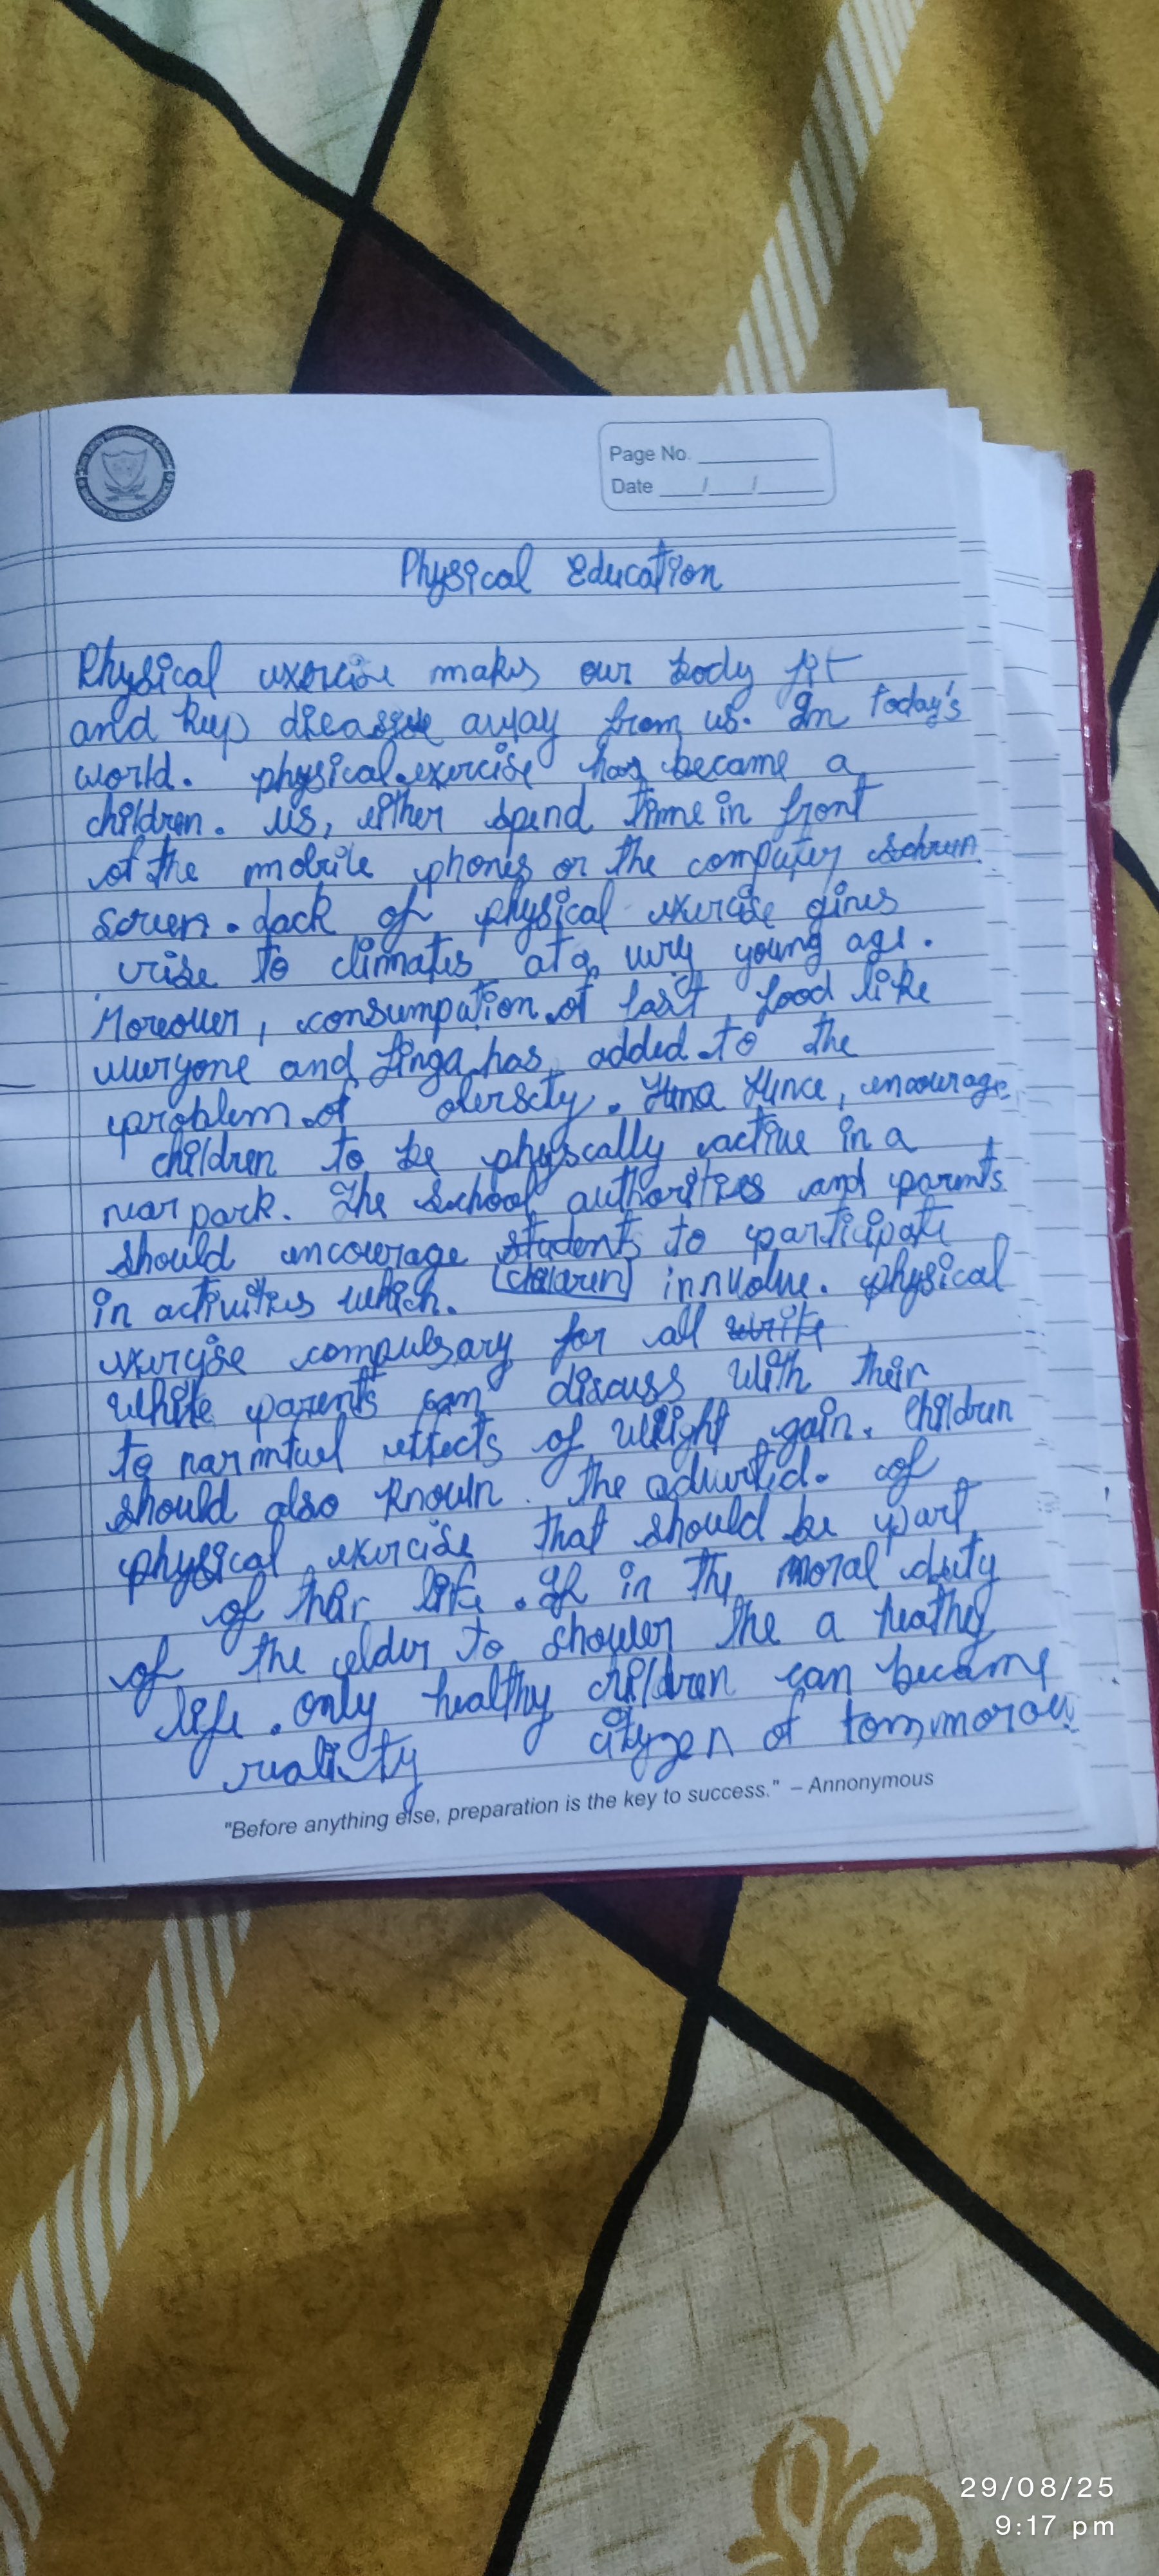 Page No.
Date / /
Physical Education
Physical exercise makes our body fit
and keep away from us. In today's
world. physical exercise has became a
children. us, either spend time in front
of the mobile phones or the computer
screen. Lack of physical exercise gives
rise to climates at a very young age.
Moreover, consumpation of fast food like
everyone and has added to the
problem of Hence, encourage
children to be physcally active in a
near park. The school authorities and parents
should encourage students to participate
in activities which. children innvolve. physical
exercise compulsary for all write
while parents can discuss with their
to effects of weight gain. Children
should also known the of
physical exercise that should be part
of their life. If in the moral duty
of the elder to the a heathey
life. only healthy children can became
reality of tommorow.
"Before anything else, preparation is the key to success." – Annonymous
29/08/25
9:17 pm